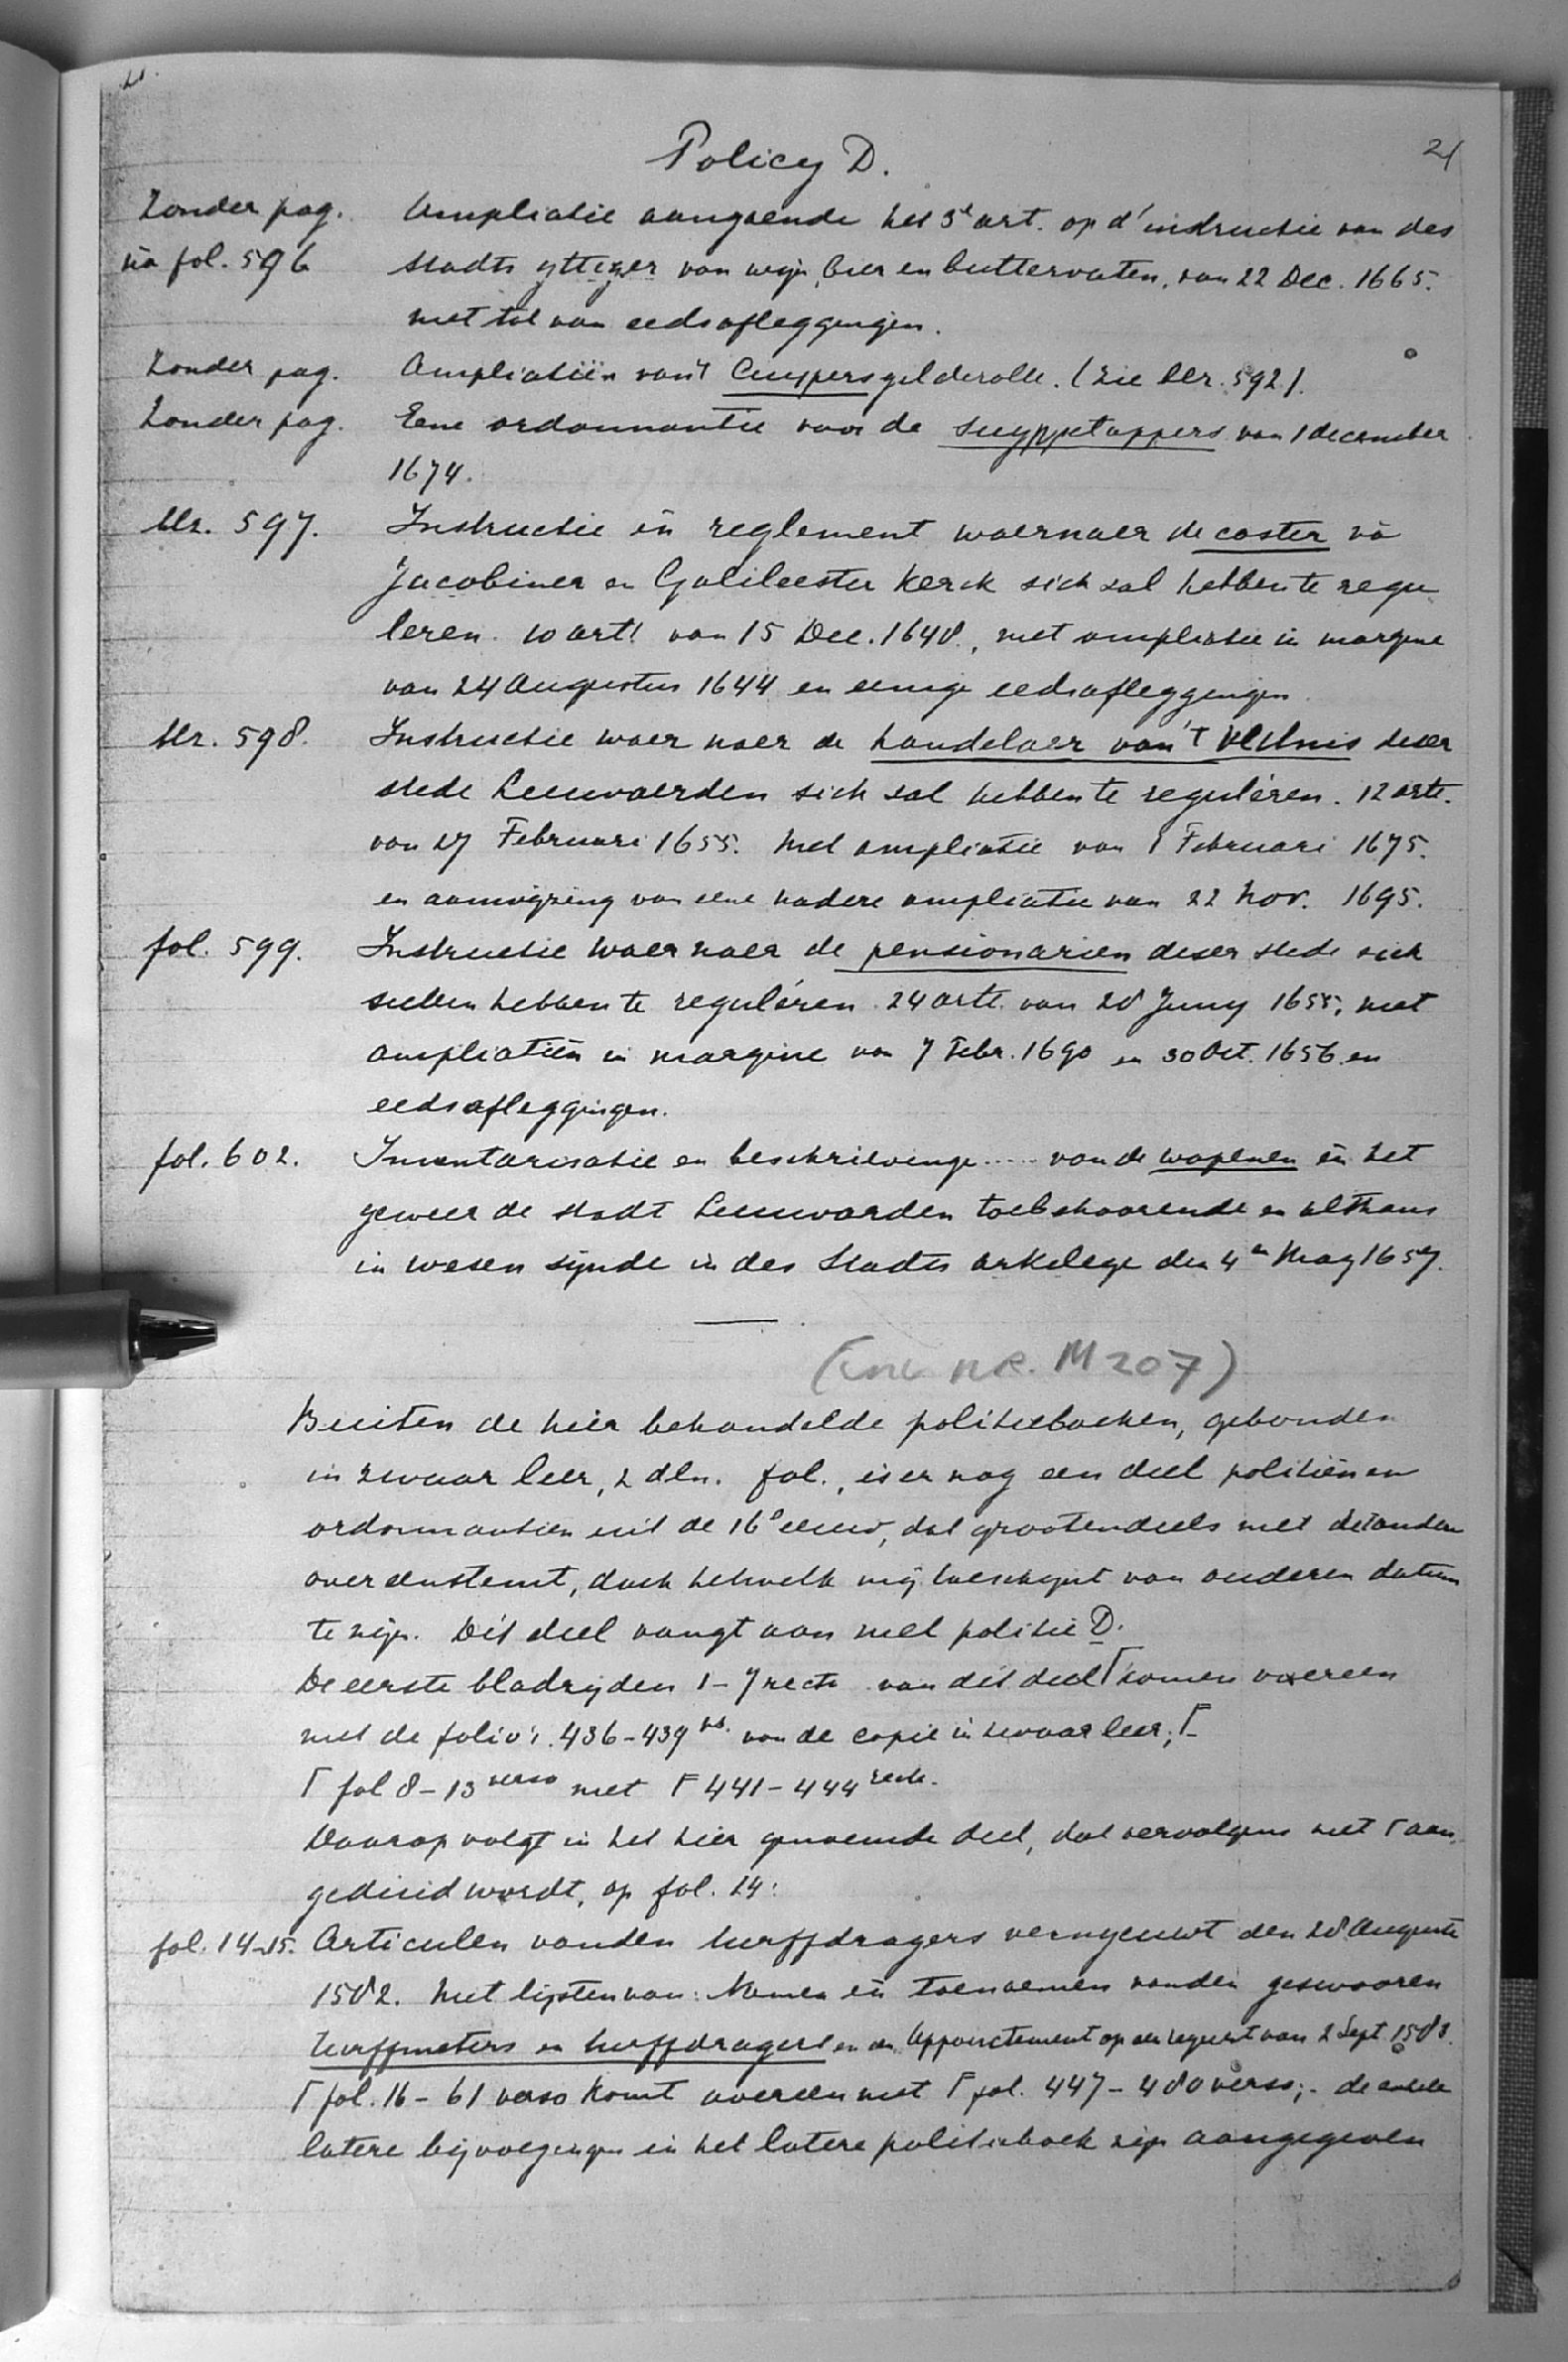 Policy D.
21
Zonder pag. Ampliatie aangaende het 3e art. op d'instructie van des
na fol. 596 stadts yttiger van wijn, bier en buttervaten, van 22 Dec. 1665.
met tal van eedsafleggingen.
Zonder pag. Ampliatiën van't Cuypersgilderolle. (Zie blz. 592).
Zonder pag. Eene ordonnantie voor de suypetappers van 1 december
1674.
blz. 597. Instructie en reglement waernaer de coster va
Jacobiner en Galileester Kerck sich sal hebben te regu
leren. 10 artl van 15 Dec. 1640, met ampliatie in margine
van 24 Augustus 1644 en eenige eedsafleggingen
blz. 598. Instructie waer naer de handelaer van't vuilnis deser
stede Leeuwaerden sich sal hebben te reguléren. 12 arti.
van 27 Februari 1655. Met ampliatie van 1 Februari 1675.
en aanwijzing van eene nadere ampliatie van 22 Nov. 1695.
fol. 599. Instructie waer naer de pensionarien deser stede sich
sullen hebben te reguléren. 24 arti. van 20 Juny 1655, met
ampliatiën in margine van 7 Febr. 1690 en 30 Oct. 1656 en
eedsafleggingen.
fol. 602. Inventarisatie en beschrievinge ..... van de wapenen en het
geweer de stadt Leeuwarden toebehoorende en althans
in wesen sijnde in des Stadts arkelege den 4en May 1657.
(inv NR. M 207)
Buiten de hier behandelde politieboeken, gebonden
in zwaar leer, 2 dln. fol., is er nog een deel politiën en
ordonnantien uit de 16e eeuw, dat grootendeels met de anderen
overeenstemt, doch hetwelk mij toeschijnt van ouderen datum
te zijn. Dit deel vangt aan met politie D.
De eerste bladzijden 1-7 recto van dit deel Γ komen overeen
met de folio's 436-439 vs. van de copie in zwaar leer; F
Γ fol 8-13 verso met F 441-444 recto.
Daarop volgt in het hier genoemde deel, dat vervolgens met Γ aan
geduid wordt, op fol. 14:
fol. 14-15. Articulen vanden turffdragers vernyeuwt den 20 Augusti
1582. Met lijsten van: Namen en toenaemen vanden geswooren
turffmeters en turffdragers en een Appoinctement op een request van 2 Sept. 1583.
Γ fol. 16-61 verso komt overeen met F fol. 447-480 verso; - de enkele
latere bijvoegingen in het latere politieboek zijn aangegeven